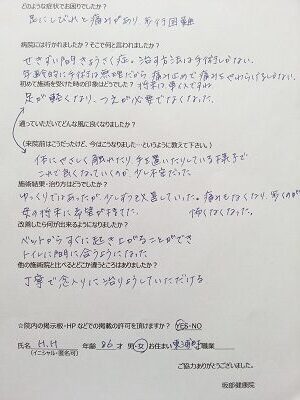 どのような症状でお困りでしたか？
足にしびれと痛みがあり、歩行困難
病院には行かれましたか？そこで何と言われましたか？
せきずい間きょうさく症。治す方法は手術しかない。
年齢的に手術は無理だから痛み止めで痛みをやわらげるしかない。
初めて施術を受けた時の印象はどうでしたか？
足が軽くなり、つえが必要でなくなった。
通っていただいてどんな風に良くなりましたか？
（来院前はこうだったけど、今はこうなりました…というように教えて下さい）
体にやさしく触れたり手を置いたりしている様子で
これで良くなっていくのか、少し不安だった。
施術結果・治り方はどうでしたか？
ゆっくりではあったが、少しずつ改善していった。痛みもなくなり、歩くのが
怖くなくなった。
改善したら何が出来るようになりましたか？
ベットからすぐに起き上がることができ
トイレに間に合うようになった
他の施術院と比べるとどこが違うところはありましたか？
丁寧で念入りに治りょうしていただける
☆院内の掲示板・HPなどでの掲載の許可を頂けますか？ YES・NO
氏名 H.H 年齢 86才 男・女 お住まい 職業
（イニシャル・匿名可）
ご協力ありがとうございました。
坂部健康院